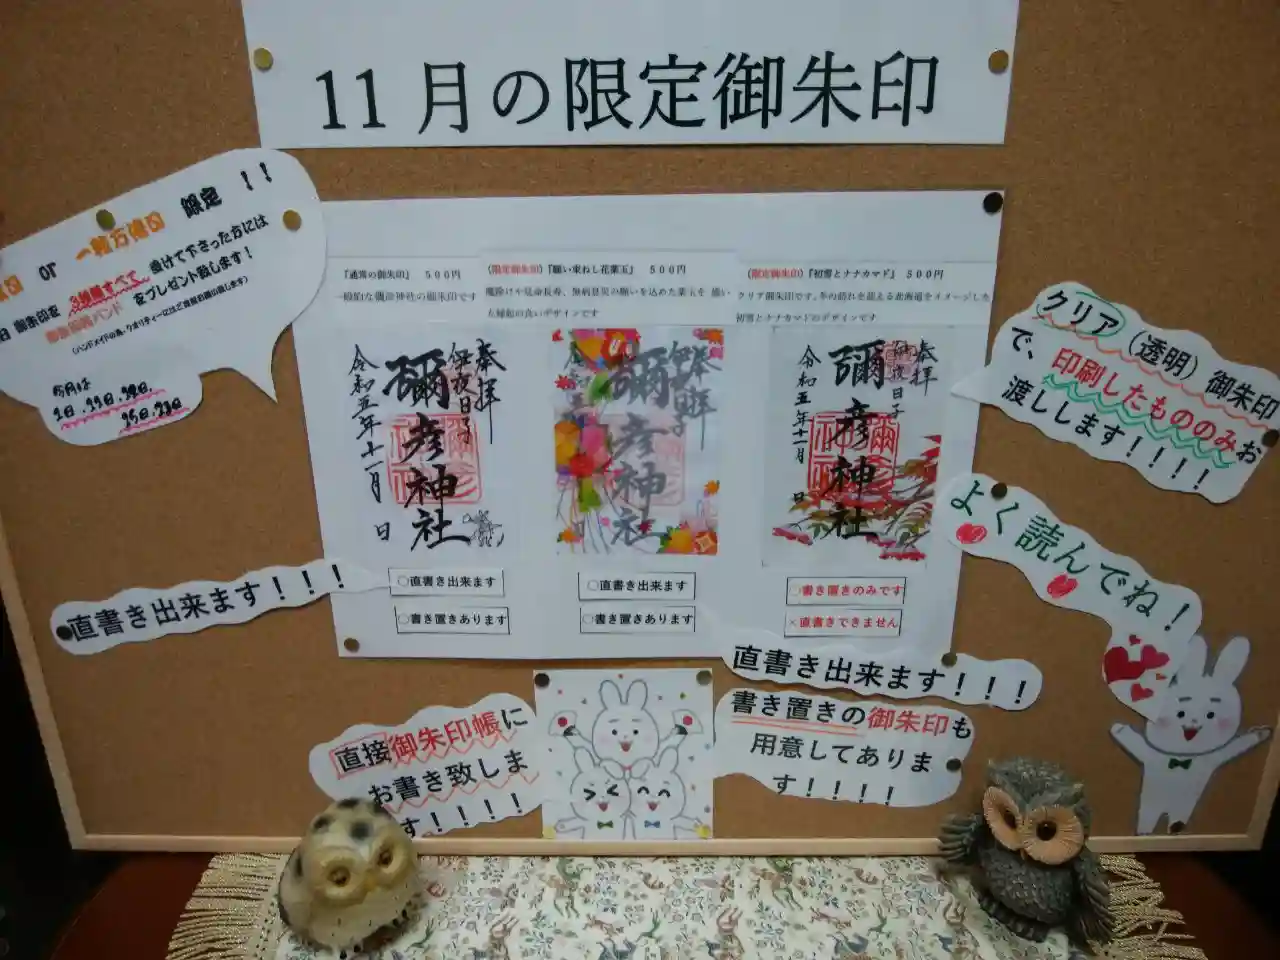 11月の限定御朱印
or 一粒万倍日 限定 !!
御朱印を 3種類すべて 受けて下さった方には
をプレゼント致します!
今月は
『通常の御朱印』 500円
一般的な彌彦神社の御朱印です
(限定御朱印)『願い束ねし花薬玉』 500円
魔除けや延命長寿、無病息災の願いを込めた薬玉を 描い
た縁起の良いデザインです
(限定御朱印)『初雪とナナカマド』 500円
クリア御朱印です。冬の訪れを迎える北海道をイメージした
初雪とナナカマドのデザインです
奉拝
伊夜日子
彌彦神社
令和五年十一月 日
奉拝
彌彦神社
奉拝
伊夜日子
彌彦神社
令和五年十一月 日
○直書き出来ます
○書き置きあります
○直書き出来ます
○書き置きあります
○書き置きのみです
×直書きできません
クリア(透明)御朱印
で、印刷したもののみお
渡しします!!!!
よく読んでね!
直書き出来ます!!!
直書き出来ます!!!
書き置きの御朱印も
用意してありま
す!!!!
直接御朱印帳に
お書き致しま
す!!!!